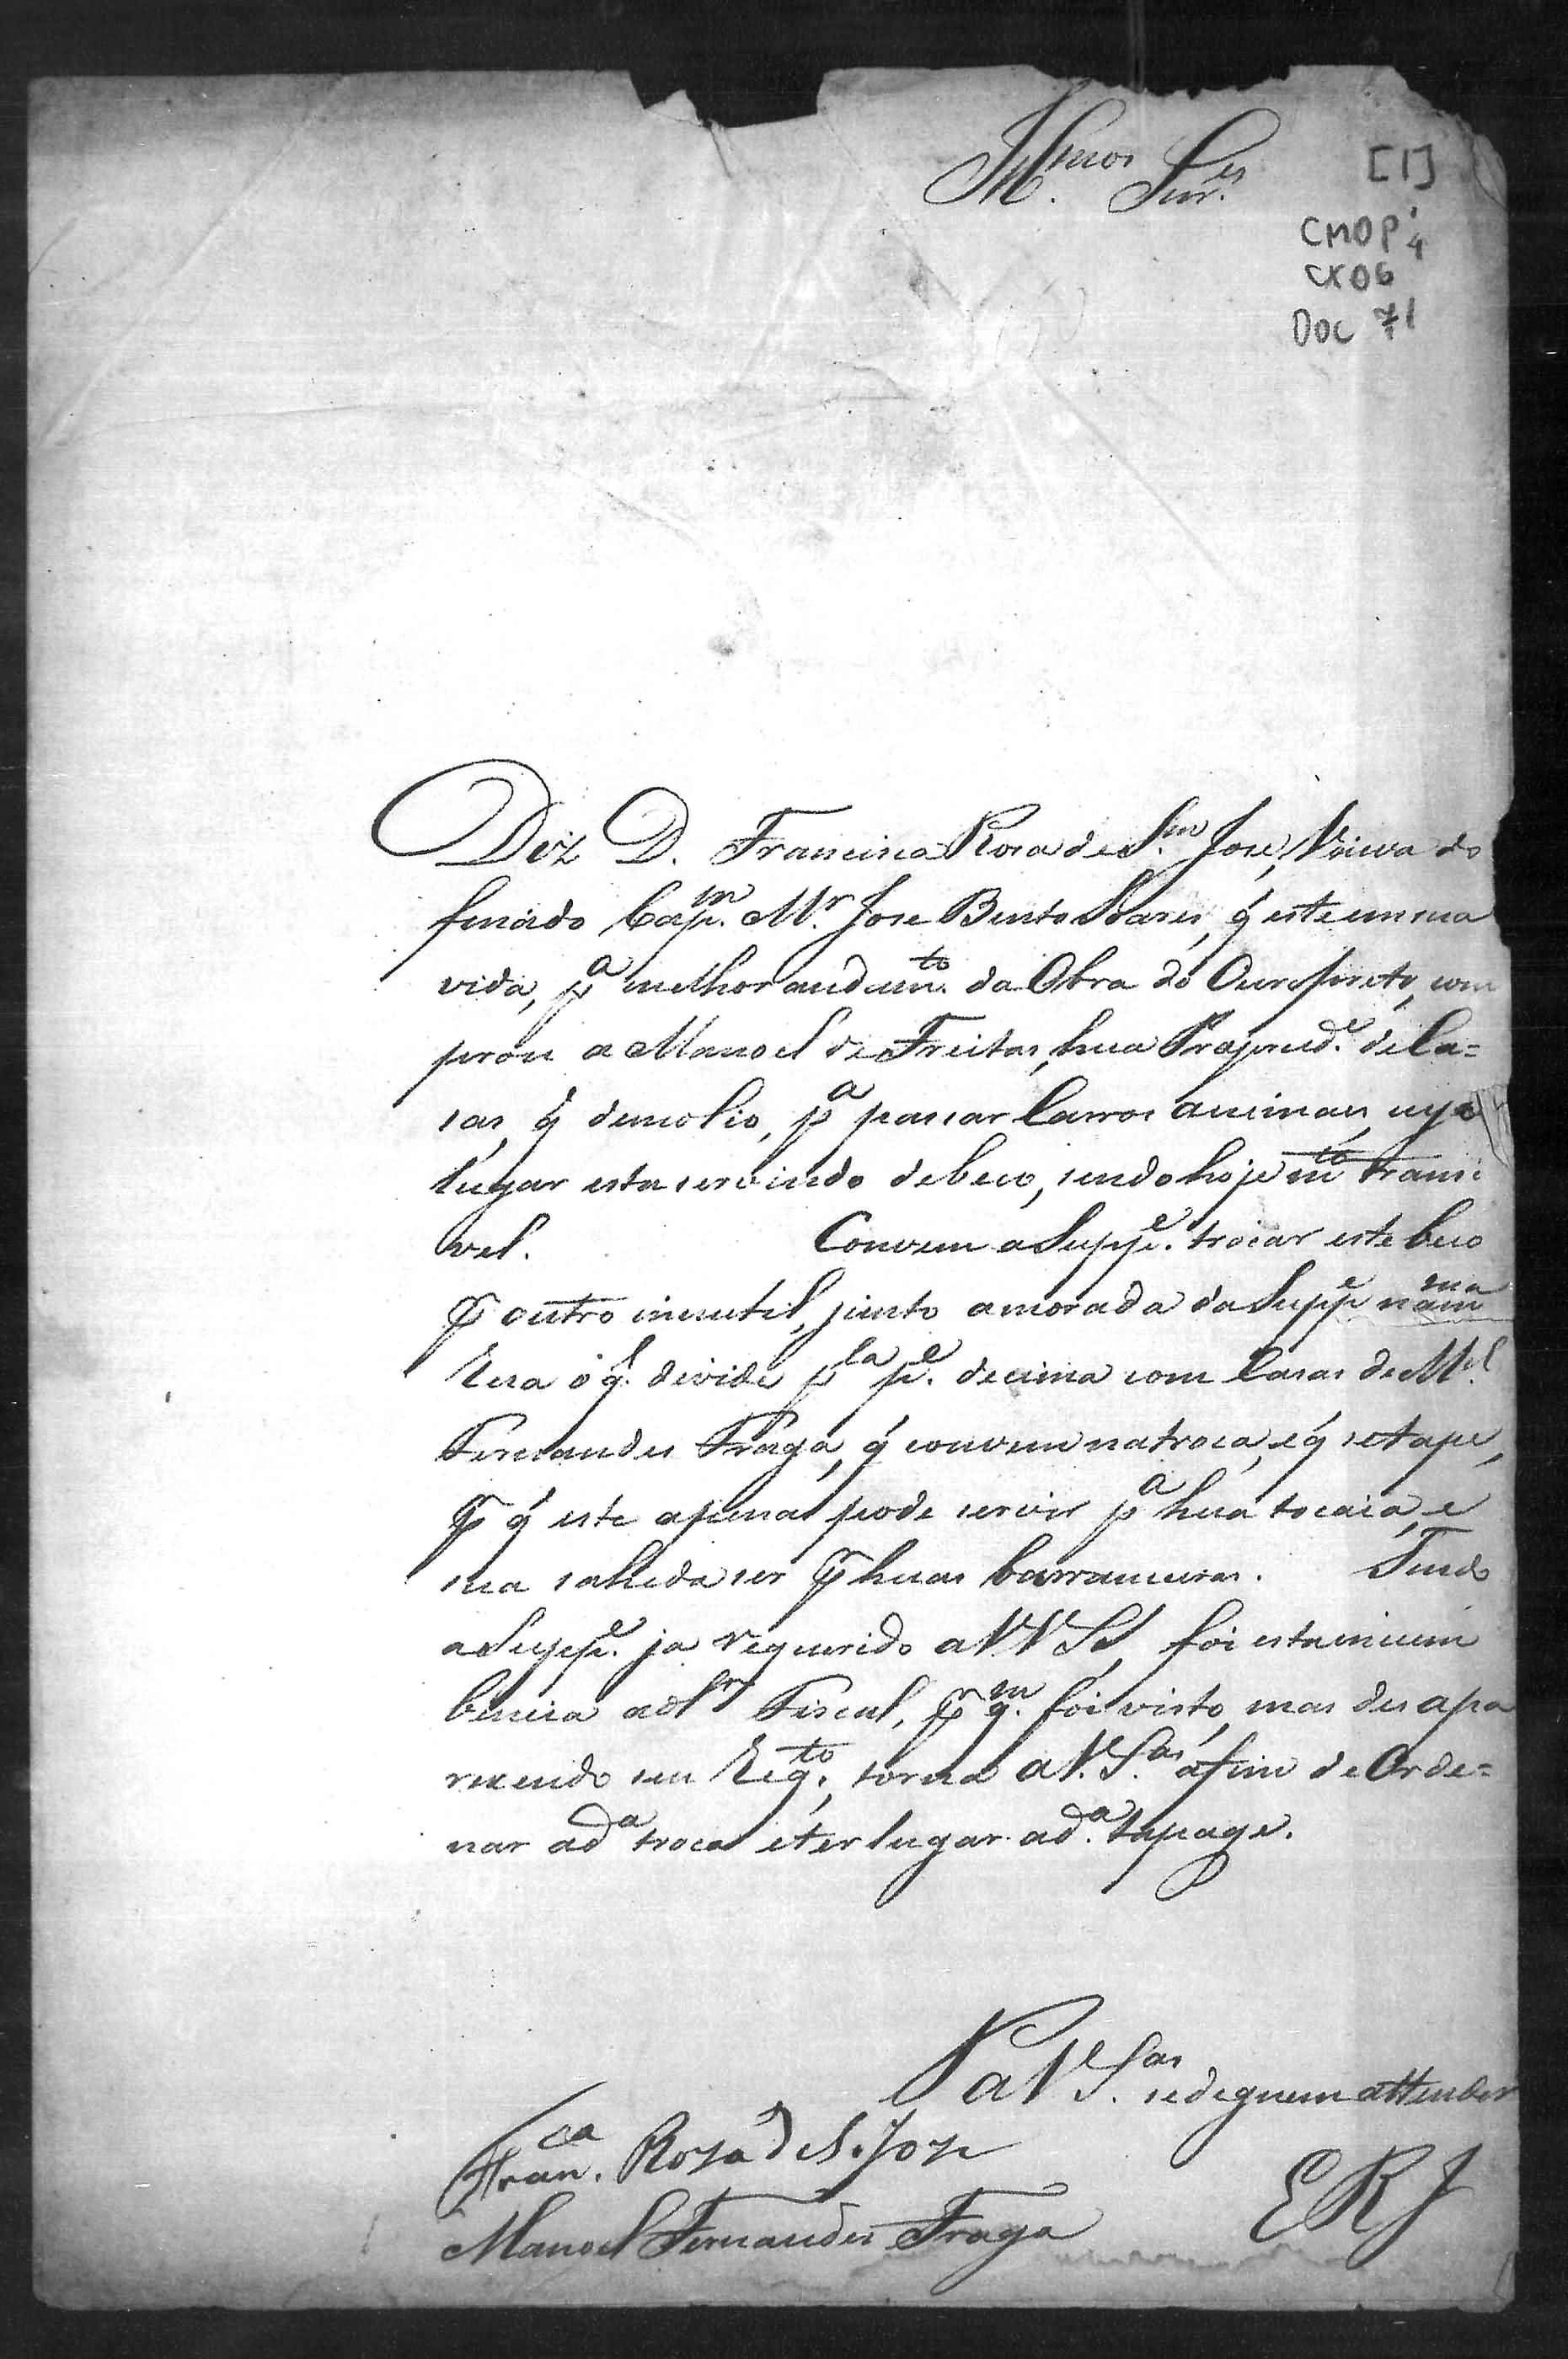 Ill.mos Snr.es
[1]
CMOP 4
CX 06
DOC 71
Diz D. Francisca Rosa de S.m Jose, Vóiuva do
finado Cap.m M.r Jose Bento Soares, q̃ este em sua
vida, p.a melhor andam.to da Obra do Ouro preto, com
prou a Manoel de Freitas, hua Propried.e de Ca=
sas, q̃ demolio, p.a passar Carros, animaes, cujo
lugar esta servindo debeco, sendo hoje m.to transi
vel. Convem a Supp.e trocar este beco
p̃ outro inutil, junto amorada da Supp.e na m.ma
Rua o q.l divide p.la p.e decima com Casas de M.el
Fernandes Fraga, q̃ convem natroca, e q̃ se tape,
p̃ q̃ este apenas pode servir p.a hua tocaia, e
sua sahida ser p̃ huas barranceiras. Tendo
a Supp.e ja requerido a VV SS, foi esta incum
bencia ao S.r Fiscal, p̃ q.m foi visto, mas desapa
recendo seu Req.to, torna a V. S.as afim de Orde=
nar a d.a troca eter lugar a d.a tapage.
P a V S.as sedegnem attender
Fran.ca Roza de S. Joze
E R J
Manoel Fernandes Fraga